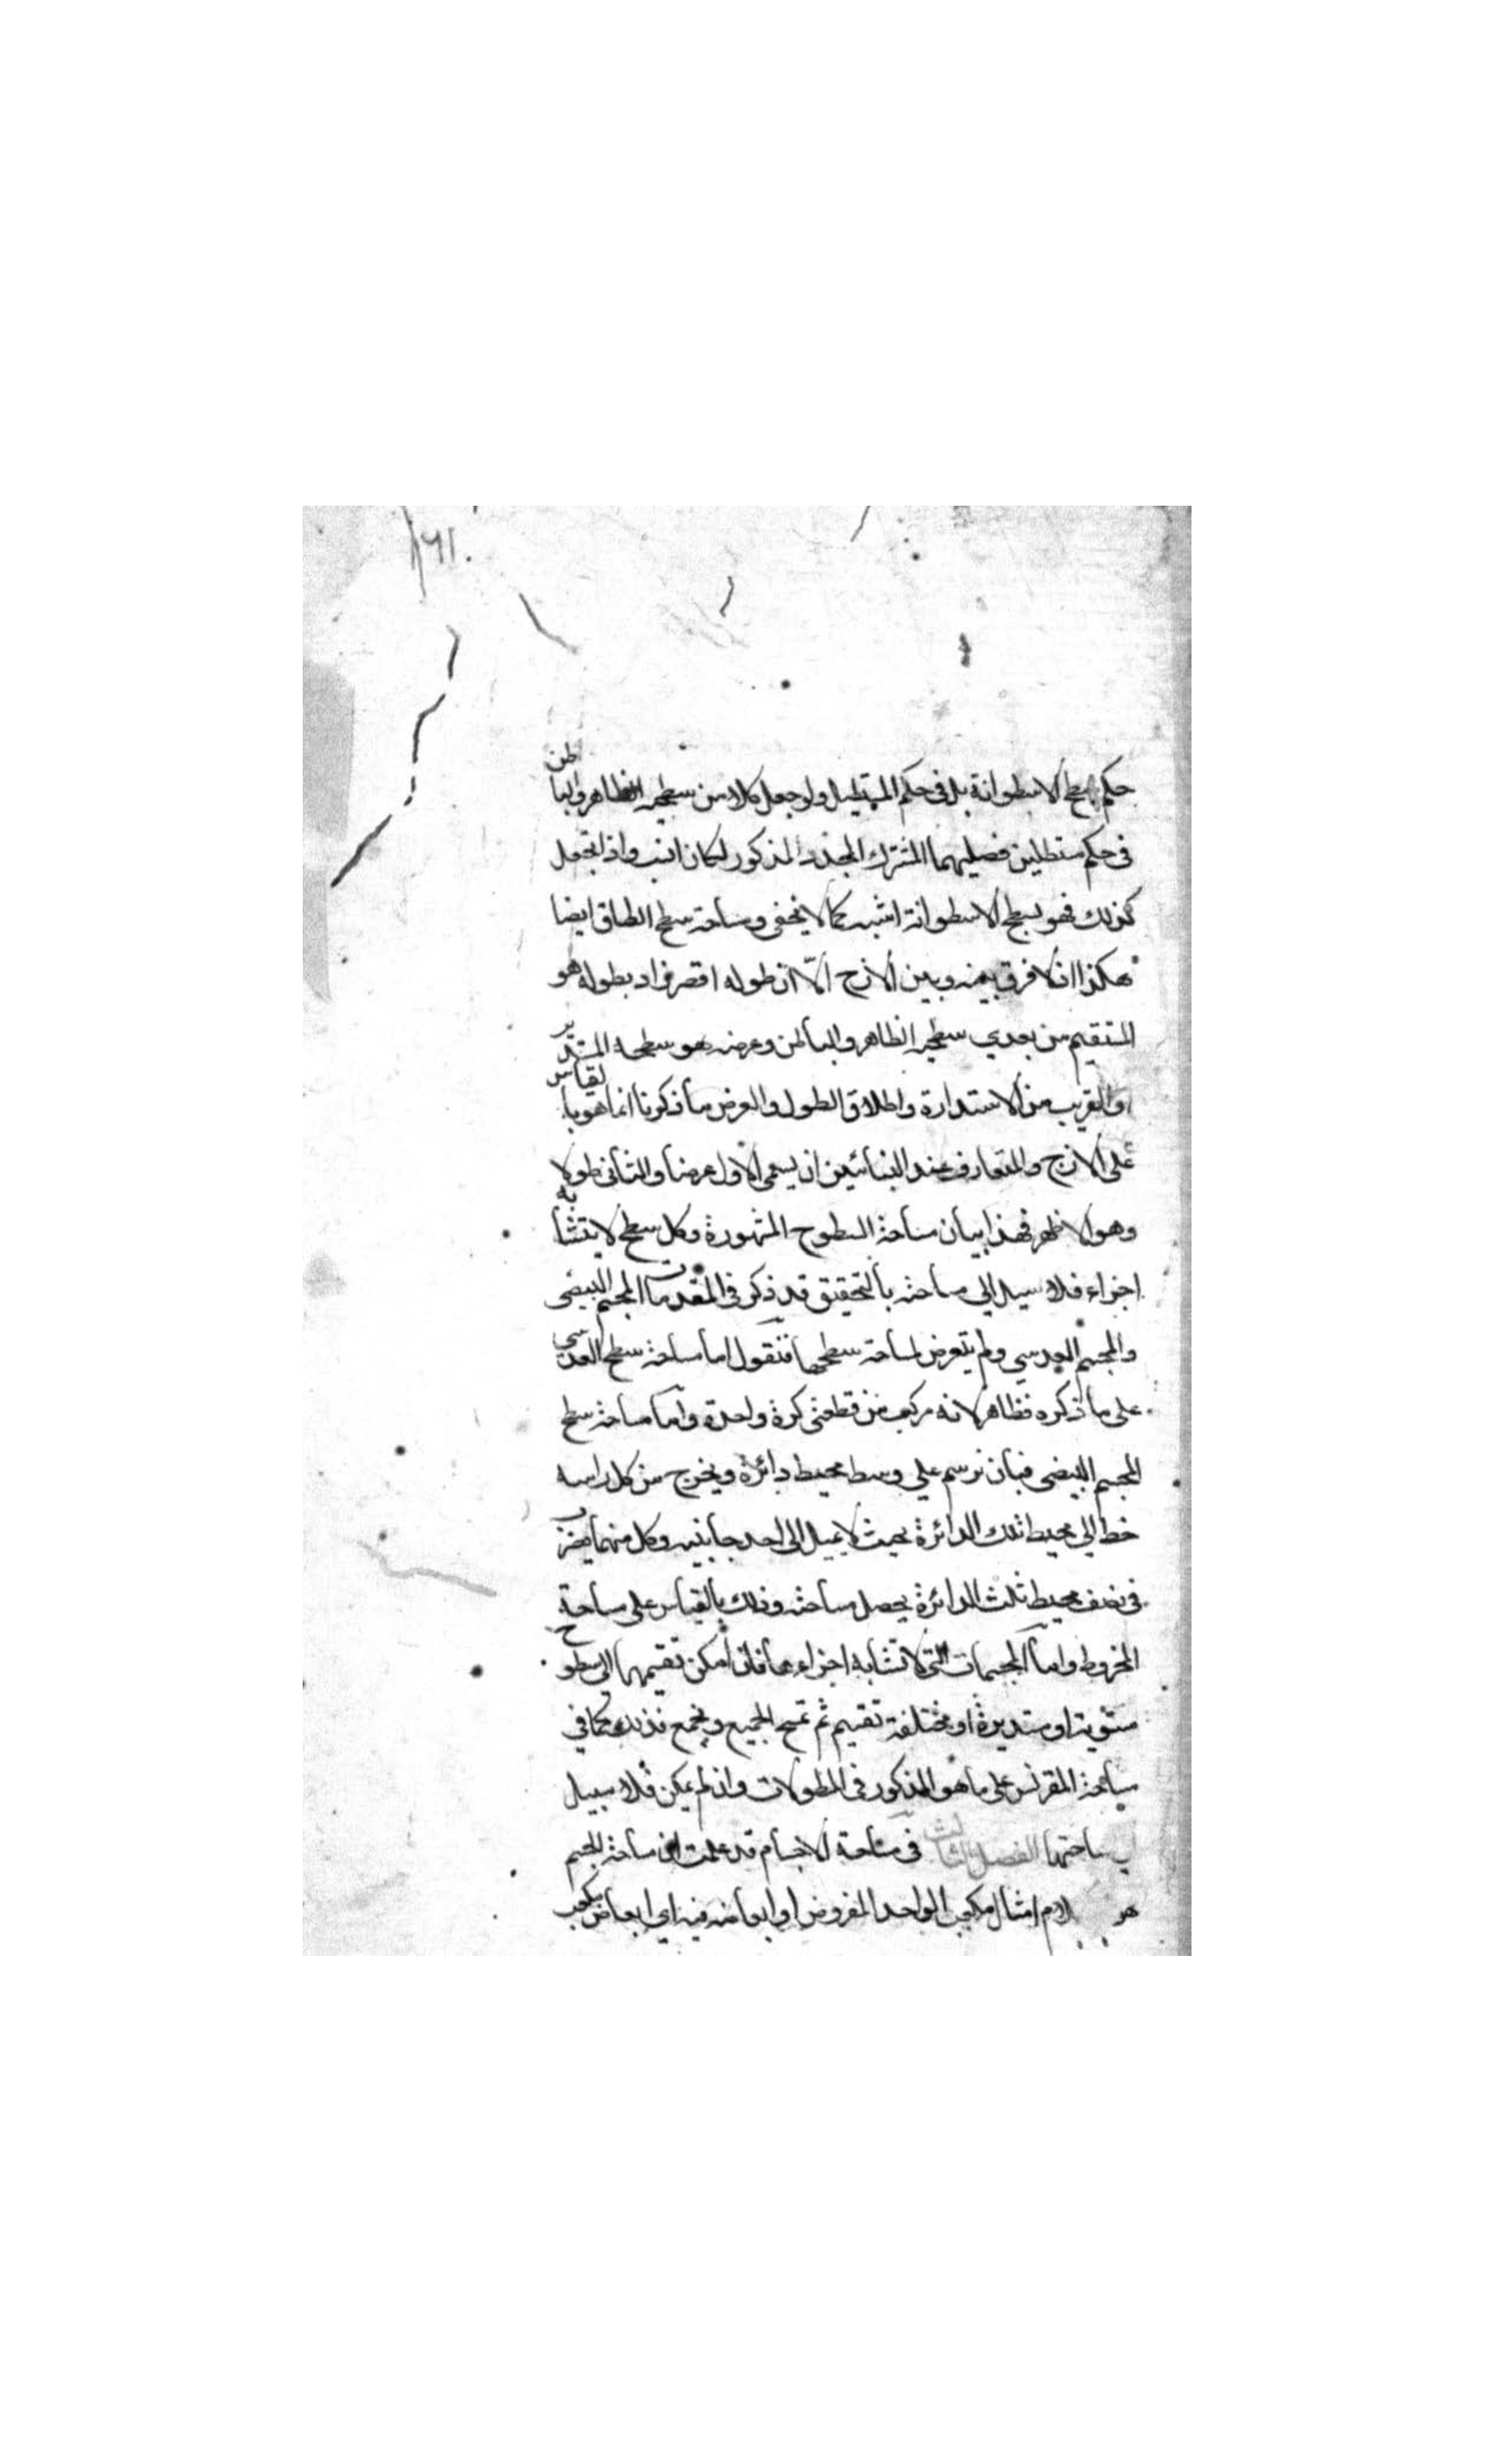 ١٦١
حكم سطح الاسطوانة بل فى حكم المستطيل ولو جعل كلا من سطحيه الظاهر والباطن
فى حكم مستطلين فصليهما المشترك المذكور لكان انسب واذا تجعل
كذلك فهو بسطح الاسطوانة اشبه كما لا يخفى ومساحة سطح الطاق ايضا
هكذا اذ لا فرق بينه وبين الازج الّا ان طوله اقصر فراد بطوله هو
المستقيم من بعدي سطحيه الظاهر والباطن وعرضه هو سطحه المستدير
او القريب من الاستدارة واطلاق الطول والعرض ما ذكرنا انما هو بالقياس
على الازج والمتعارف عند البنائين ان يسمى الاول عرضا والثانى طولا
وهو الاظهر فهذا بيان مساحة السطوح المشهورة وكل سطح لا يتشابه
اجزاء فلا سبيل الى مساحته بالتحقيق قد ذكر فى المقدمات المجسم البيضى
والمجسم العدسي ولم يتعرض لمساحة سطحهما فنقول اما مساحة سطح العدسي
على ما ذكره فظاهر لانه مركب من قطعتى كرة واحدة واما مساحة سطح
المجسم البيضى فبان نرسم على وسط محيط دائرة ويخرج من كل راسه
خط الى محيط تلك الدائرة بحيث لا يميل الى احد جانبيه وكل منهما يضرب
فى نصف محيط تلك الدائرة يحصل مساحته وذلك بالقياس على مساحة
المخروط واما المجسمات التى لا تشابه اجزاءها فان امكن تقسيمها الى سطوح
مستوية او مستديرة او مختلفة تقسيم ثم تمسح الجميع ويجمع فذلك كما فى
مساحة المقرنس على ما هو المذكور فى المطولات وان لم يمكن فلا سبيل
مساحتها الفصل الثالث فى مساحة الاجسام قد علمت ان مساحة الجسم
هو امثال مكعب الواحد المفروض او ابعاضه فيه اي ابعاض مكعب